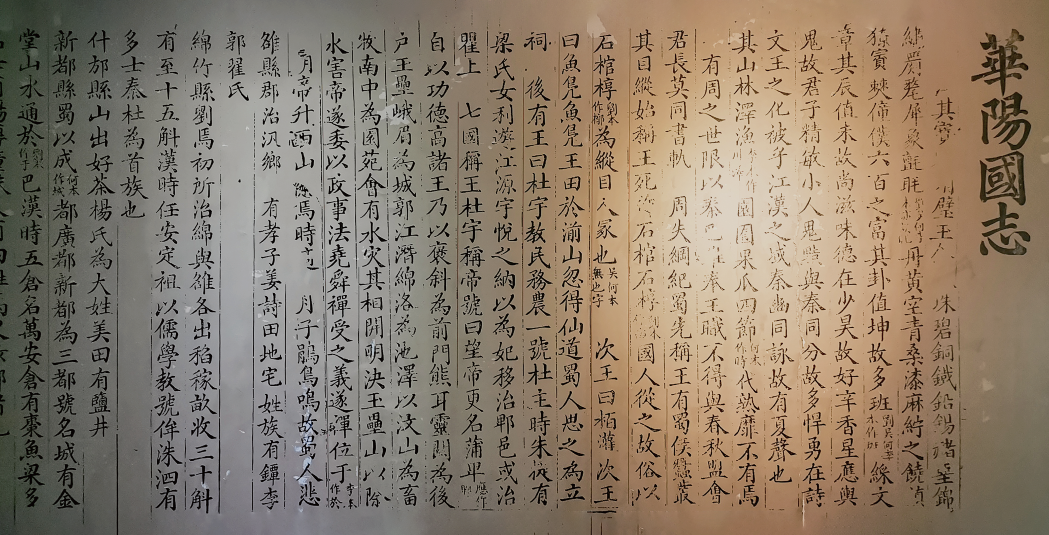 華陽國志
其寶 璧玉 珠碧銅鐵鉛錫赭堊錦
繡罽氂犀象氈毦丹黃空青桑漆麻紵之饒滇
獠賨僰僮僕六百之富其卦值坤故多班綵文
章其辰值未故尚滋味德在少昊故好辛香星應輿
鬼故君子精敏小人鬼黠與秦同分故多悍勇在詩
文王之化被乎江漢之域秦豳同詠故有夏聲也
其山林澤漁 園囿果瓜四節代熟靡不有焉
有周之世限以秦巴 奉王職不得與春秋盟會
君長莫同書軌 周失綱紀蜀先稱王有蜀侯蠶叢
其目縱始稱王死 石棺石椁 國人從之故俗以
石棺椁為縱目人冢也 次王曰柏灌 次王
曰魚鳧魚鳧王田於湔山忽得仙道蜀人思之為立
祠 後有王曰杜宇教民務農一號杜主時朱提有
梁氏女利遊江源宇悅之納以為妃移治郫邑或治
瞿上 七國稱王杜宇稱帝號曰望帝更名蒲卑
自以功德高諸王乃以褒斜為前門熊耳靈關為後
戶玉壘峨眉為城郭江潛綿洛為池澤以汶山為畜
牧南中為園苑會有水災其相開明決玉壘山以除
水害帝遂委以政事法堯舜禪受之義遂禪位于
帝升西山 焉時 月子鵑鳥鳴故蜀人悲
雒縣郡治汎鄉 有孝子姜詩田地宅姓族有鐔李
郭翟氏
綿竹縣劉焉初所治綿與雒各出稻稼畝收三十斛
有至十五斛漢時任安定祖以儒學教號侔洙泗有
多士秦杜為首族也
什邡縣山出好茶楊氏為大姓美田有鹽井
新都縣蜀以成都廣都新都為三都號名城有金
堂山水通於巴漢時五倉名萬安倉有棗魚梁多